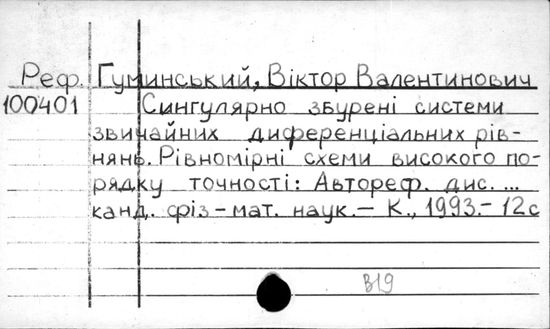 Реф. Гуминський, Віктор Валентинович
100401 Сингулярно збурені системи
звичайних диференціальних рів-
нянь. Рівномірні схеми високого по-
рядку точності: Автореф. дис. ...
канд. фіз-мат. наук.- К., 1993.- 12с
В19